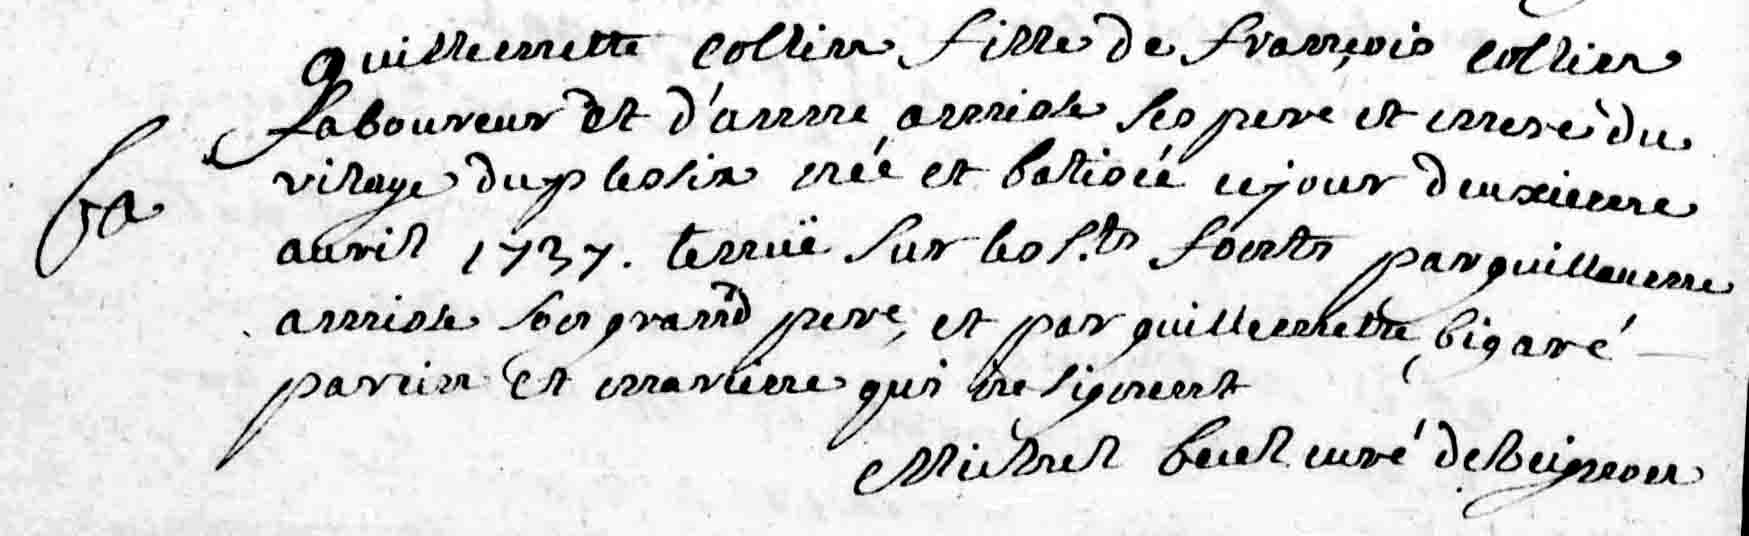 guillemette collin fille de françois collin
Laboureur et d'anne anniole ses pere et mere du
village du plesix née et batisée ce jour deuxieme
avril 1737. tenuë sur les S.ts fonts par guillaume
ba
anniole son grand pere, et par guillemette bigaré
parein et mareine qui ne signent
Michel curé de Beignon